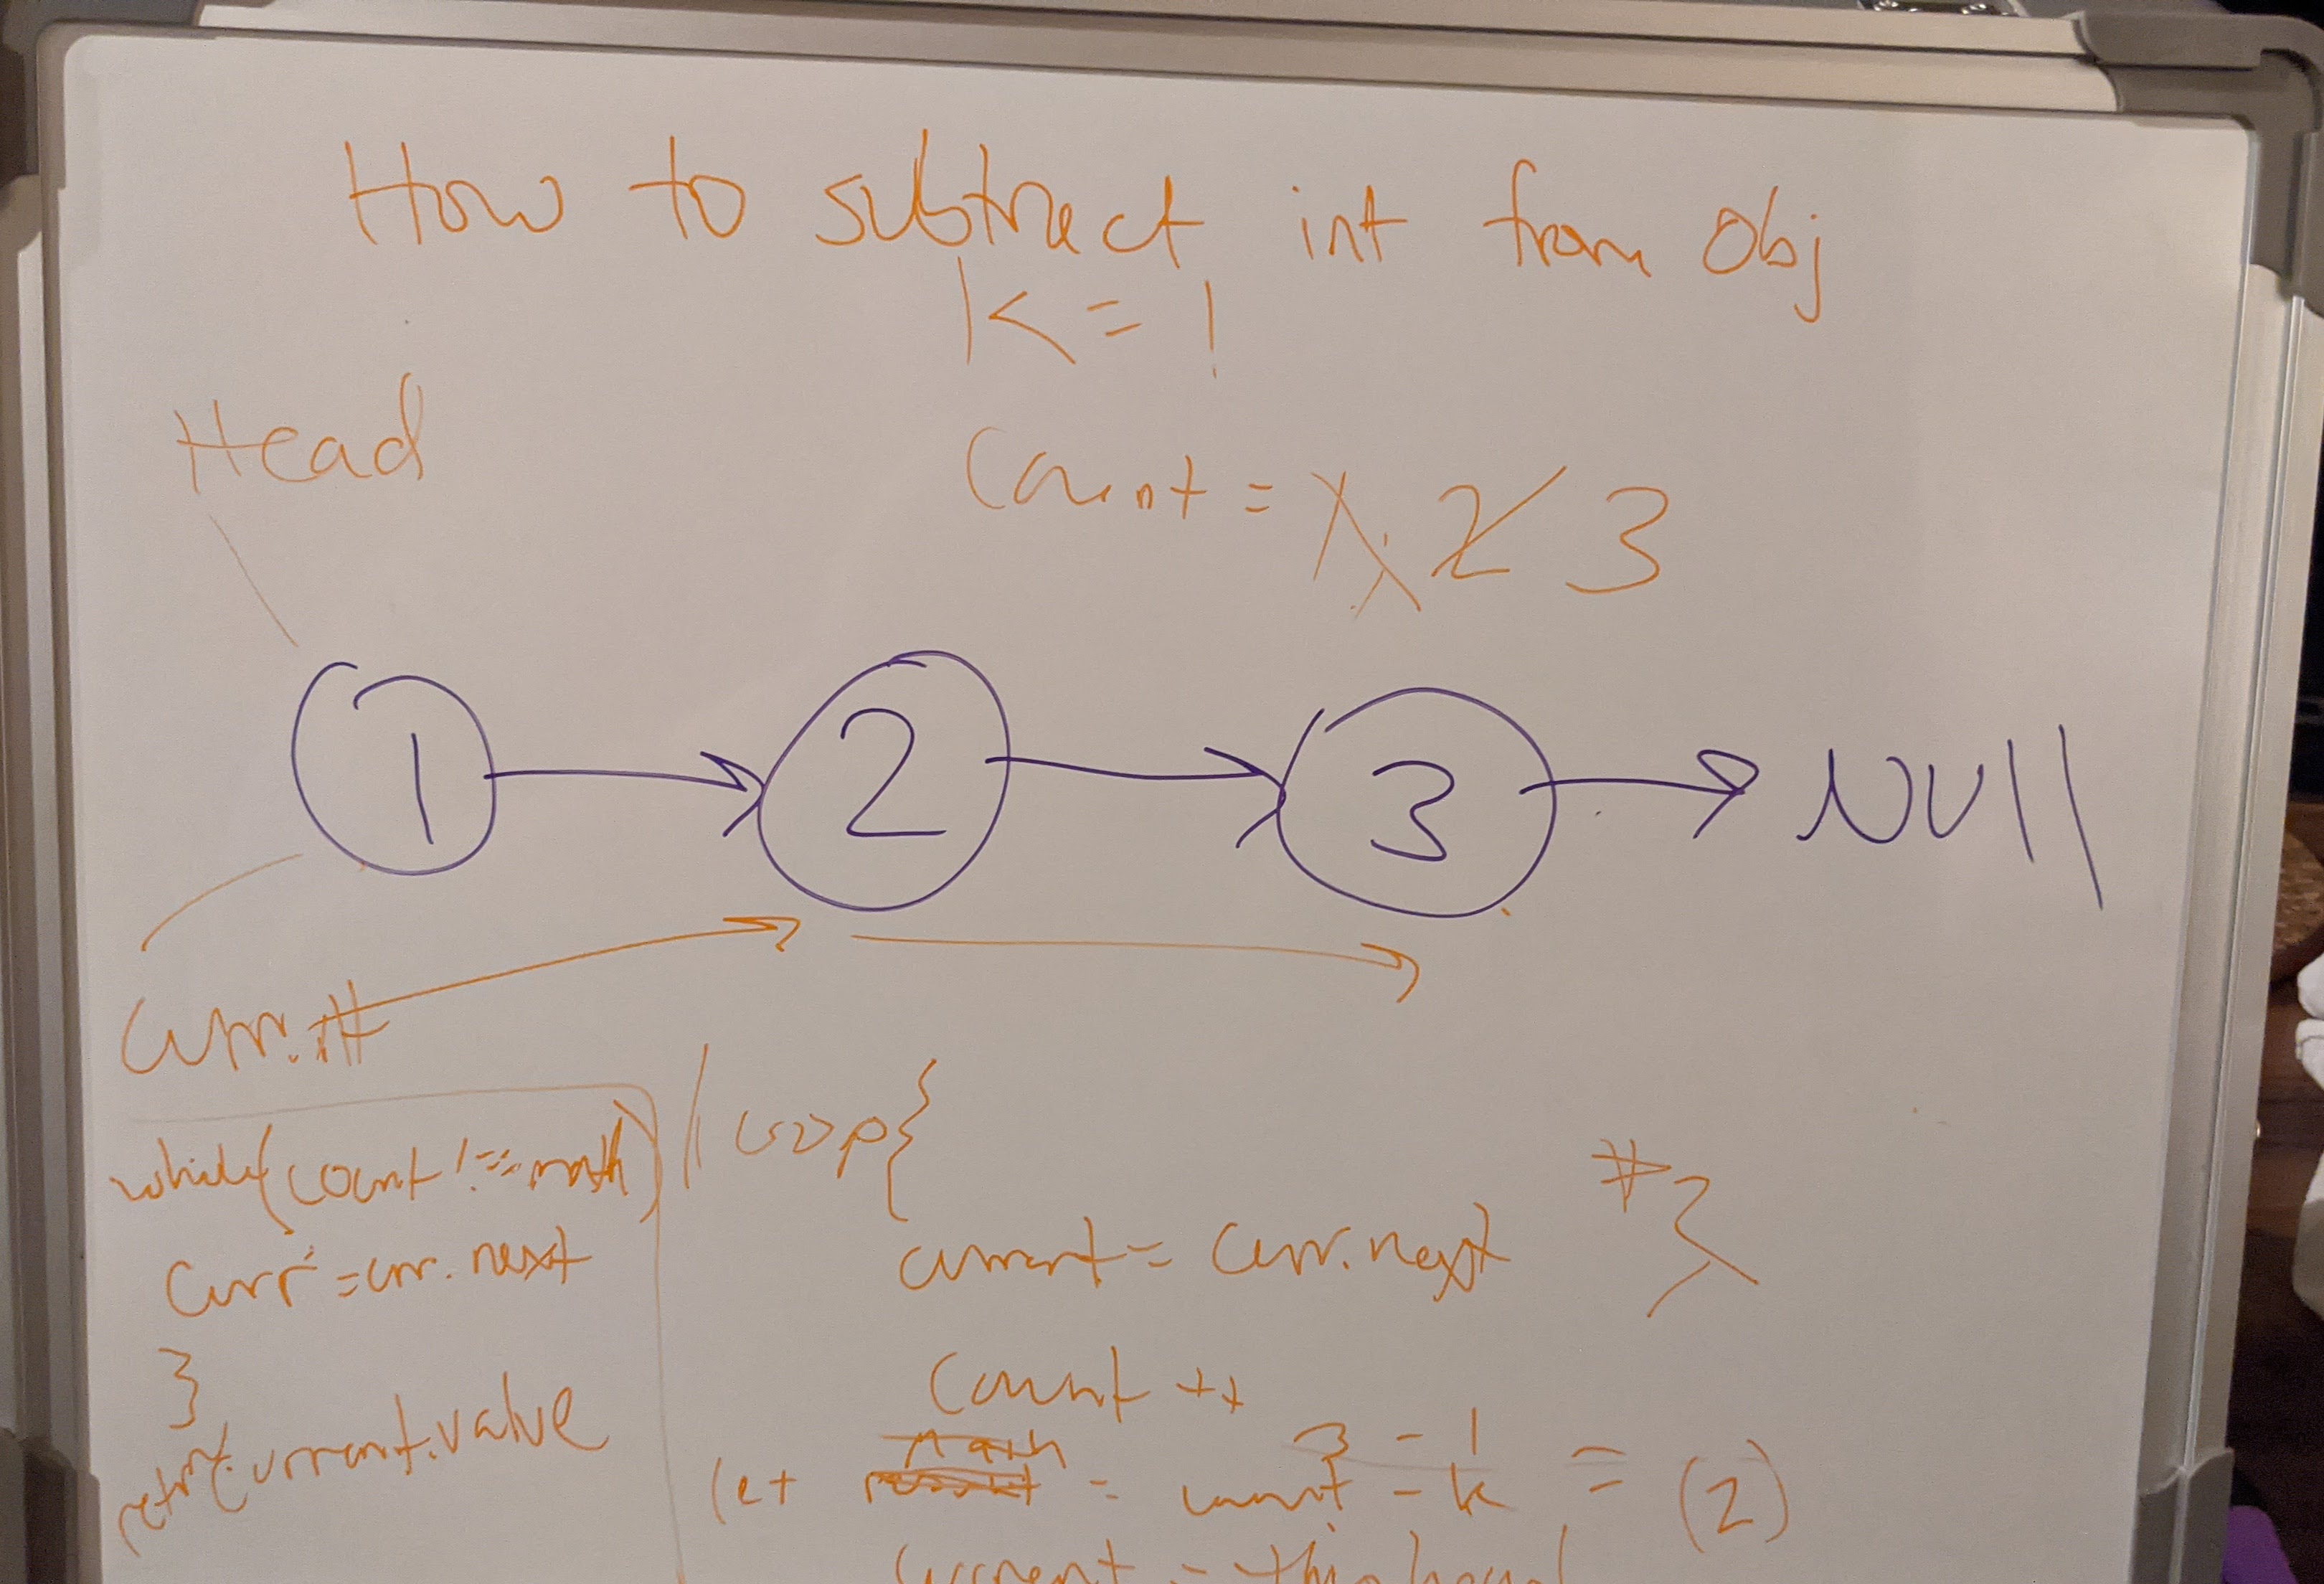 How to subtract int from Obj
K = 1
Head
Count = 1, 2 3
1 2 3 NUll
Curr.
while(count !== math)
Curr = curr.next
}
return current.value
loop{
current = curr.next
#2
Count ++
3 - 1
let math = count - k = (2)
Current = this.head